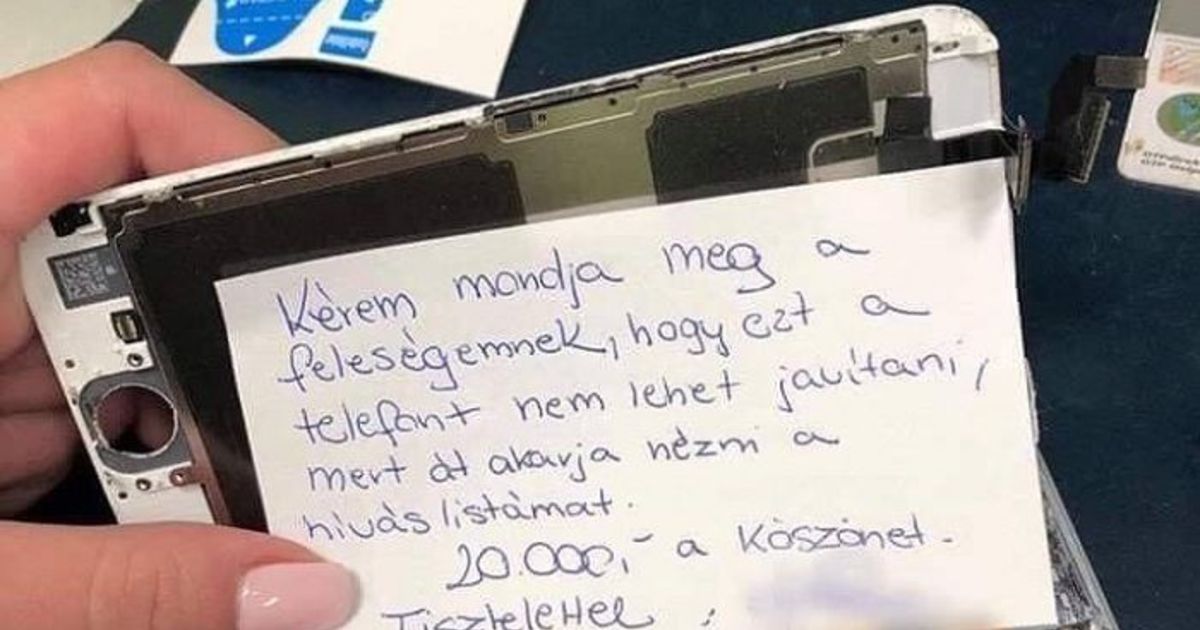 Kérem mondja meg a
feleségemnek, hogy ezt a
telefont nem lehet javítani,
mert át akarja nézni a
híváslistámat.
20.000,- a köszönet.
Tisztelettel: